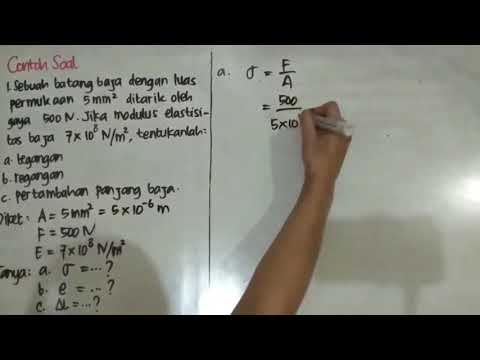 Contoh Soal
1. Sebuah batang baja dengan luas
permukaan 5 mm² ditarik oleh
gaya 500 N. Jika modulus elastisi-
tas baja 7×10⁸ N/m², tentukanlah:
a. tegangan
b. regangan
c. pertambahan panjang baja.
Diket: A = 5 mm² = 5×10⁻⁶ m
F = 500 N
E = 7×10⁸ N/m²
Tanya: a. σ = ...?
b. e = ...?
c. ΔL = ...?
a. σ = F/A
= 500/5×10